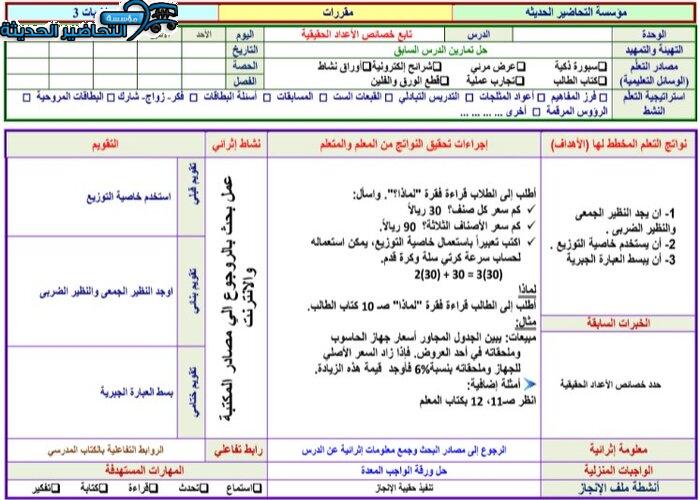 مؤسسة التحاضير الحديثه
مقررات
3
مؤسسة
التحاضير الحديثة
الوحدة
الدرس
تابع خصائص الأعداد الحقيقية
اليوم
الأحد
التهيئة والتمهيد
حل تمارين الدرس السابق
التاريخ
مصادر التعلم
(الوسائل التعليمية)
سبورة ذكية
عرض مرئي
شرائح إلكترونية
أوراق نشاط
الحصة
كتاب الطالب
تجارب عملية
قطع الورق والفلين
الفصل
استراتيجية التعلم النشط
فرز المفاهيم
أعواد المثلجات
التدريس التبادلي
القبعات الست
المسابقات
أسئلة البطاقات
فكر- زواج- شارك
البطاقات المروحية
الرؤوس المرقمة
أخرى ... ... ... ...
نواتج التعلم المخطط لها (الأهداف)
إجراءات تحقيق النواتج من المعلم والمتعلم
نشاط إثرائي
التقويم
1- ان يجد النظير الجمعى والنظير الضربى .
2- أن يستخدم خاصية التوزيع .
3- أن يبسط العبارة الجبرية
الخبرات السابقة
حدد خصائص الأعداد الحقيقية
أطلب إلى الطلاب قراءة فقرة "لماذا؟". واسأل:
كم سعر كل صنف؟ 30 ريالاً
كم سعر الأصناف الثلاثة؟ 90 ريالاً.
اكتب تعبيراً باستعمال خاصية التوزيع، يمكن استعماله لحساب سرعة كرتي سلة وكرة قدم.
2(30) + 30 = 3(30)
لماذا
أطلب إلى الطالب قراءة فقرة "لماذا" صـ 10 كتاب الطالب.
مثال:
مبيعات: يبين الجدول المجاور أسعار جهاز الحاسوب وملحقاته في أحد العروض. فإذا زاد السعر الأصلي للجهاز وملحقاته بنسبة6% فأوجد قيمة هذه الزيادة.
أمثلة إضافية:
انظر صـ11، 12 بكتاب المعلم
عمل بحث بالرجوع إلي مصادر المكتبة والانترنت
تقويم قبلي
استخدم خاصية التوزيع
تقويم بنائي
اوجد النظير الجمعى والنظير الضربى
تقويم ختامي
بسط العبارة الجبرية
معلومة إثرائية
الرجوع إلى مصادر البحث وجمع معلومات إثرائية عن الدرس
رابط تفاعلي
الروابط التفاعلية بالكتاب المدرسي
الواجبات المنزلية
حل ورقة الواجب المعدة
المهارات المستهدفة
أنشطة ملف الإنجاز
تنفيذ حقيبة الإنجاز
استماع
تحدث
قراءة
كتابة
تفكير